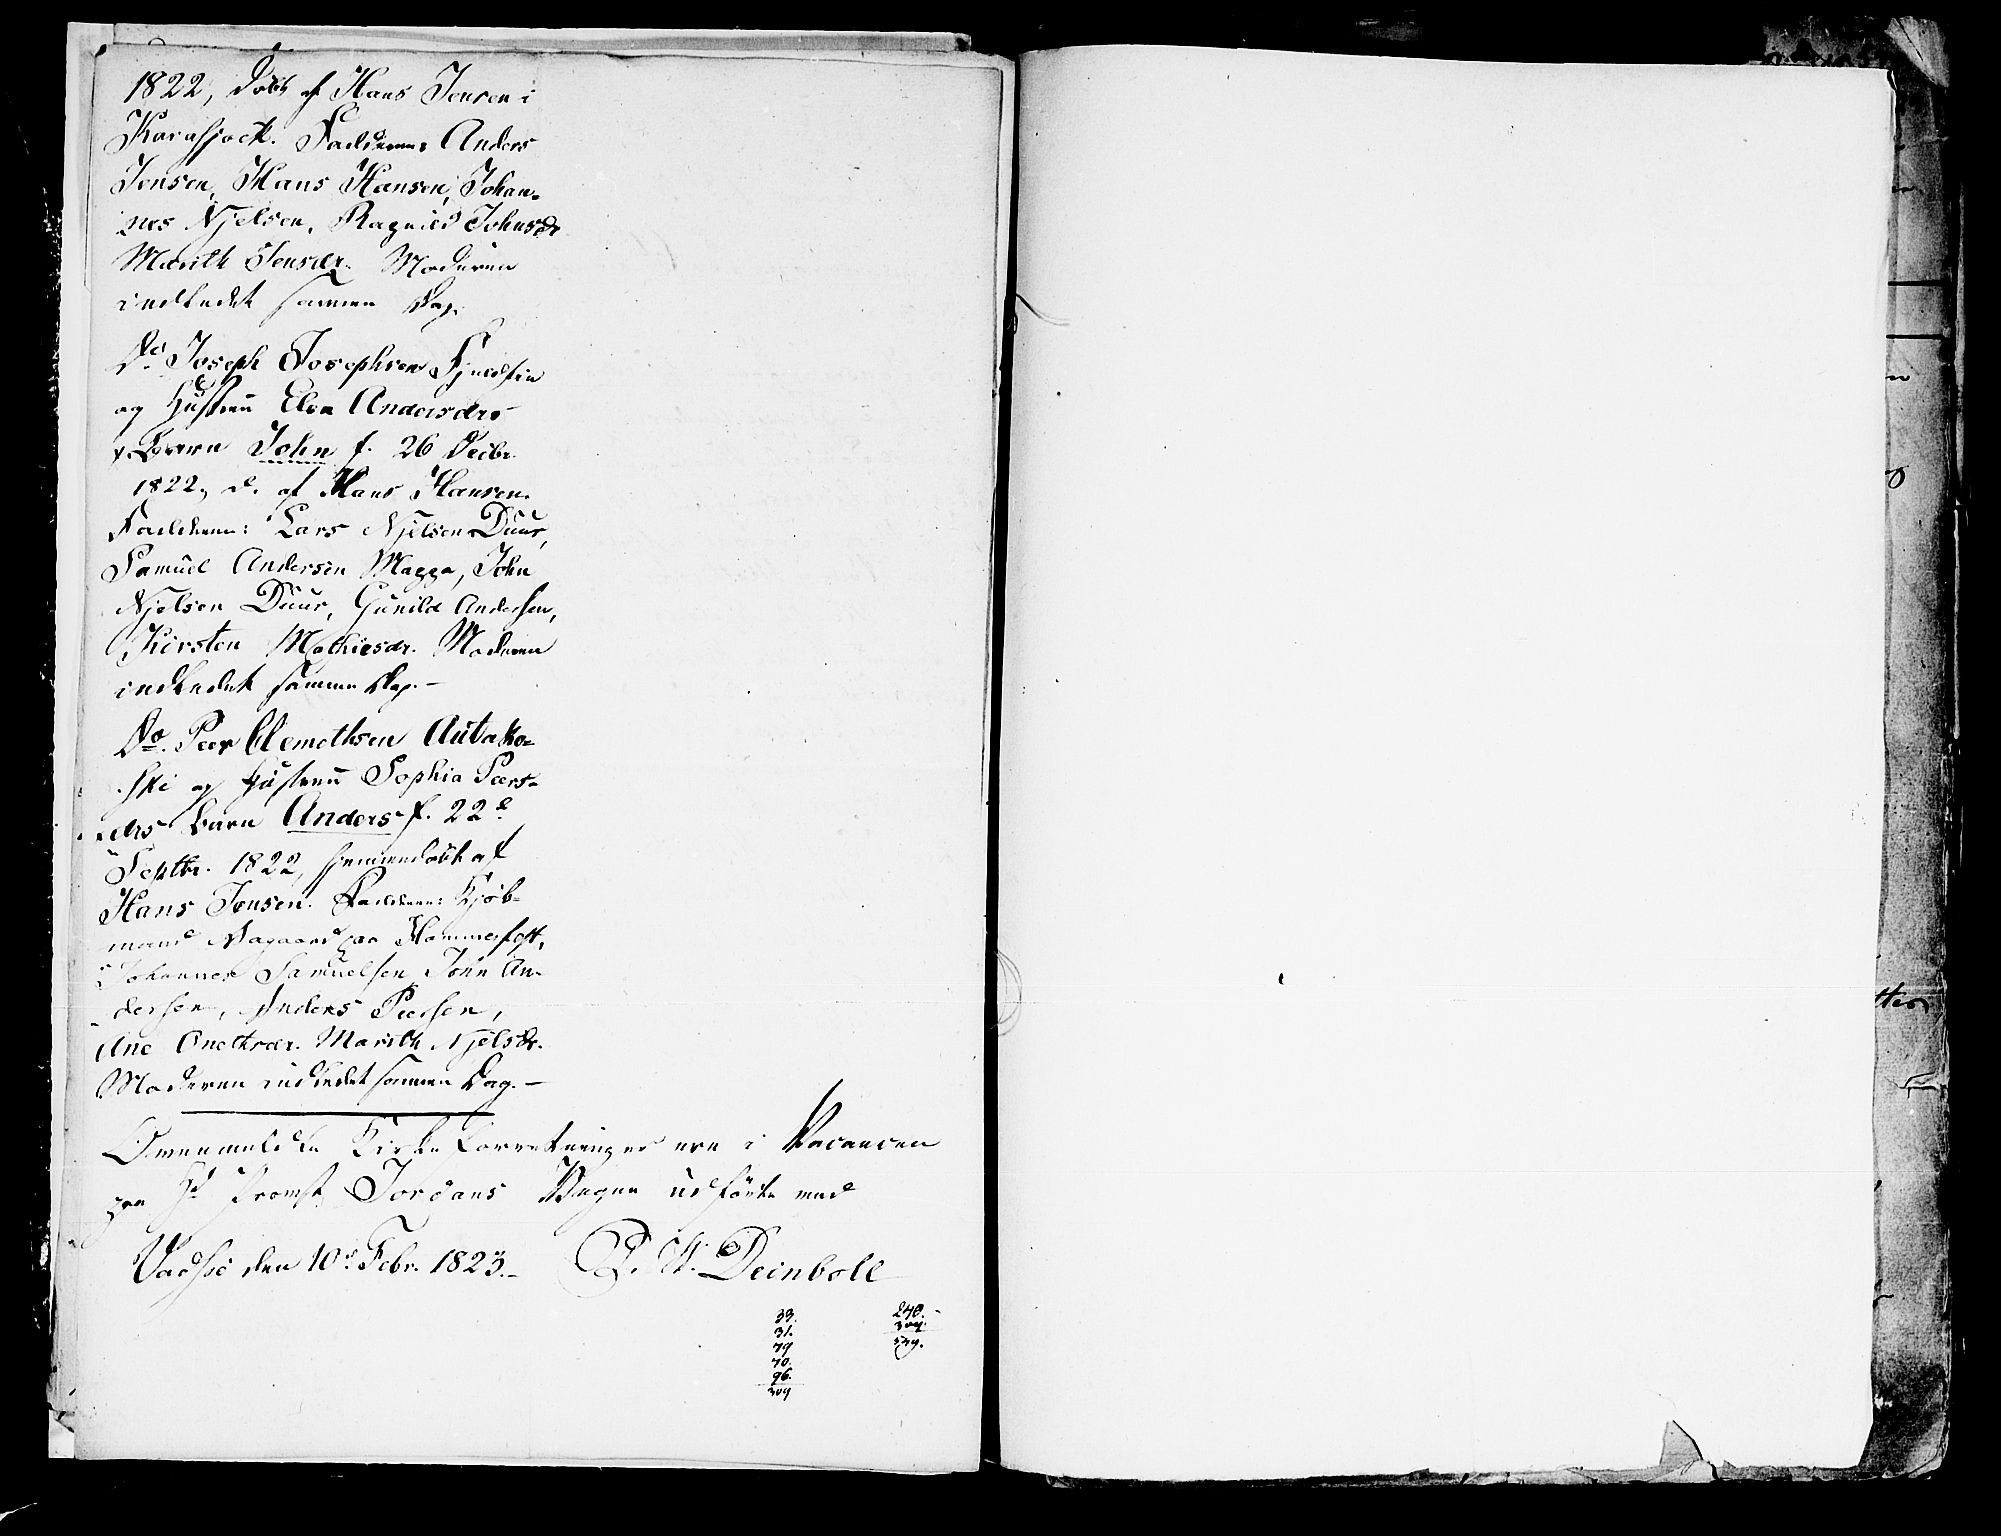 1822, döbt af Hans Jensen i
Karasjock. Fadderne: Anders
Jensen, Hans Hansen, Johan-
nes Njelsen, Ragnild Johnsdr
Marith Jensdr. Moderen
indledet samme Dag.
Do. Joseph Josephsen
og Hustrue Elen Andersdrs
Barn John f. 26 Decbr.
1822, d. af Hans Hansen.
Fadderne: Lars Njelsen Duur,
Samuel Andersen Magga, John
Njelsen Duur, Gunild Andersen,
Kirsten Mathiesdr. Moderen
indledet samme Dag. -
Do. Peer Clemethsen Autako-
ski og Hustrue Sophia Peers-
drs Barn Anders f. 22d
Septbr. 1822, hjemmedöbt af
Hans Jensen. Fadderne: Kjöb-
mand Aagaard paa Hammerfest,
Johannes Samuelsen, John An-
dersen, Anders Peersen,
Ane Anethsdr. Marith Njelsdr.
Moderen indledet samme Dag. -
Ovenmeldte Kirkeforretninger ere i Vacancen
paa Hr Provst Jordans Vegne udförte med
Vadsö den 10de Febr. 1823. - P. W. Deinboll
33. 240. -
31. 309.
79 549.
70.
96.
309